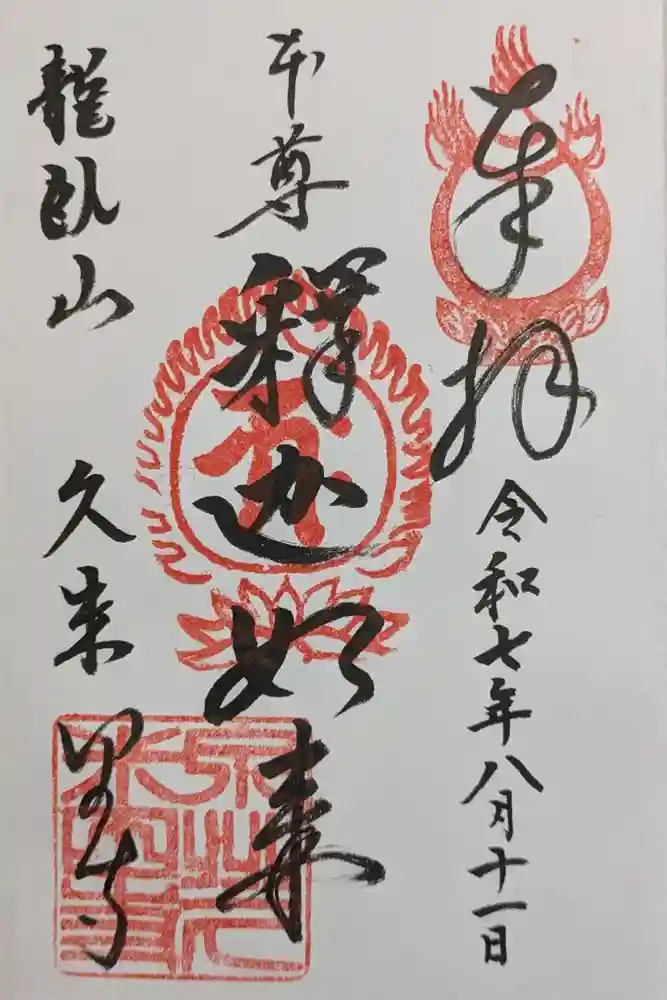 奉拝
令和七年八月十一日
本尊
釋迦如来
龍臥山
久
寺